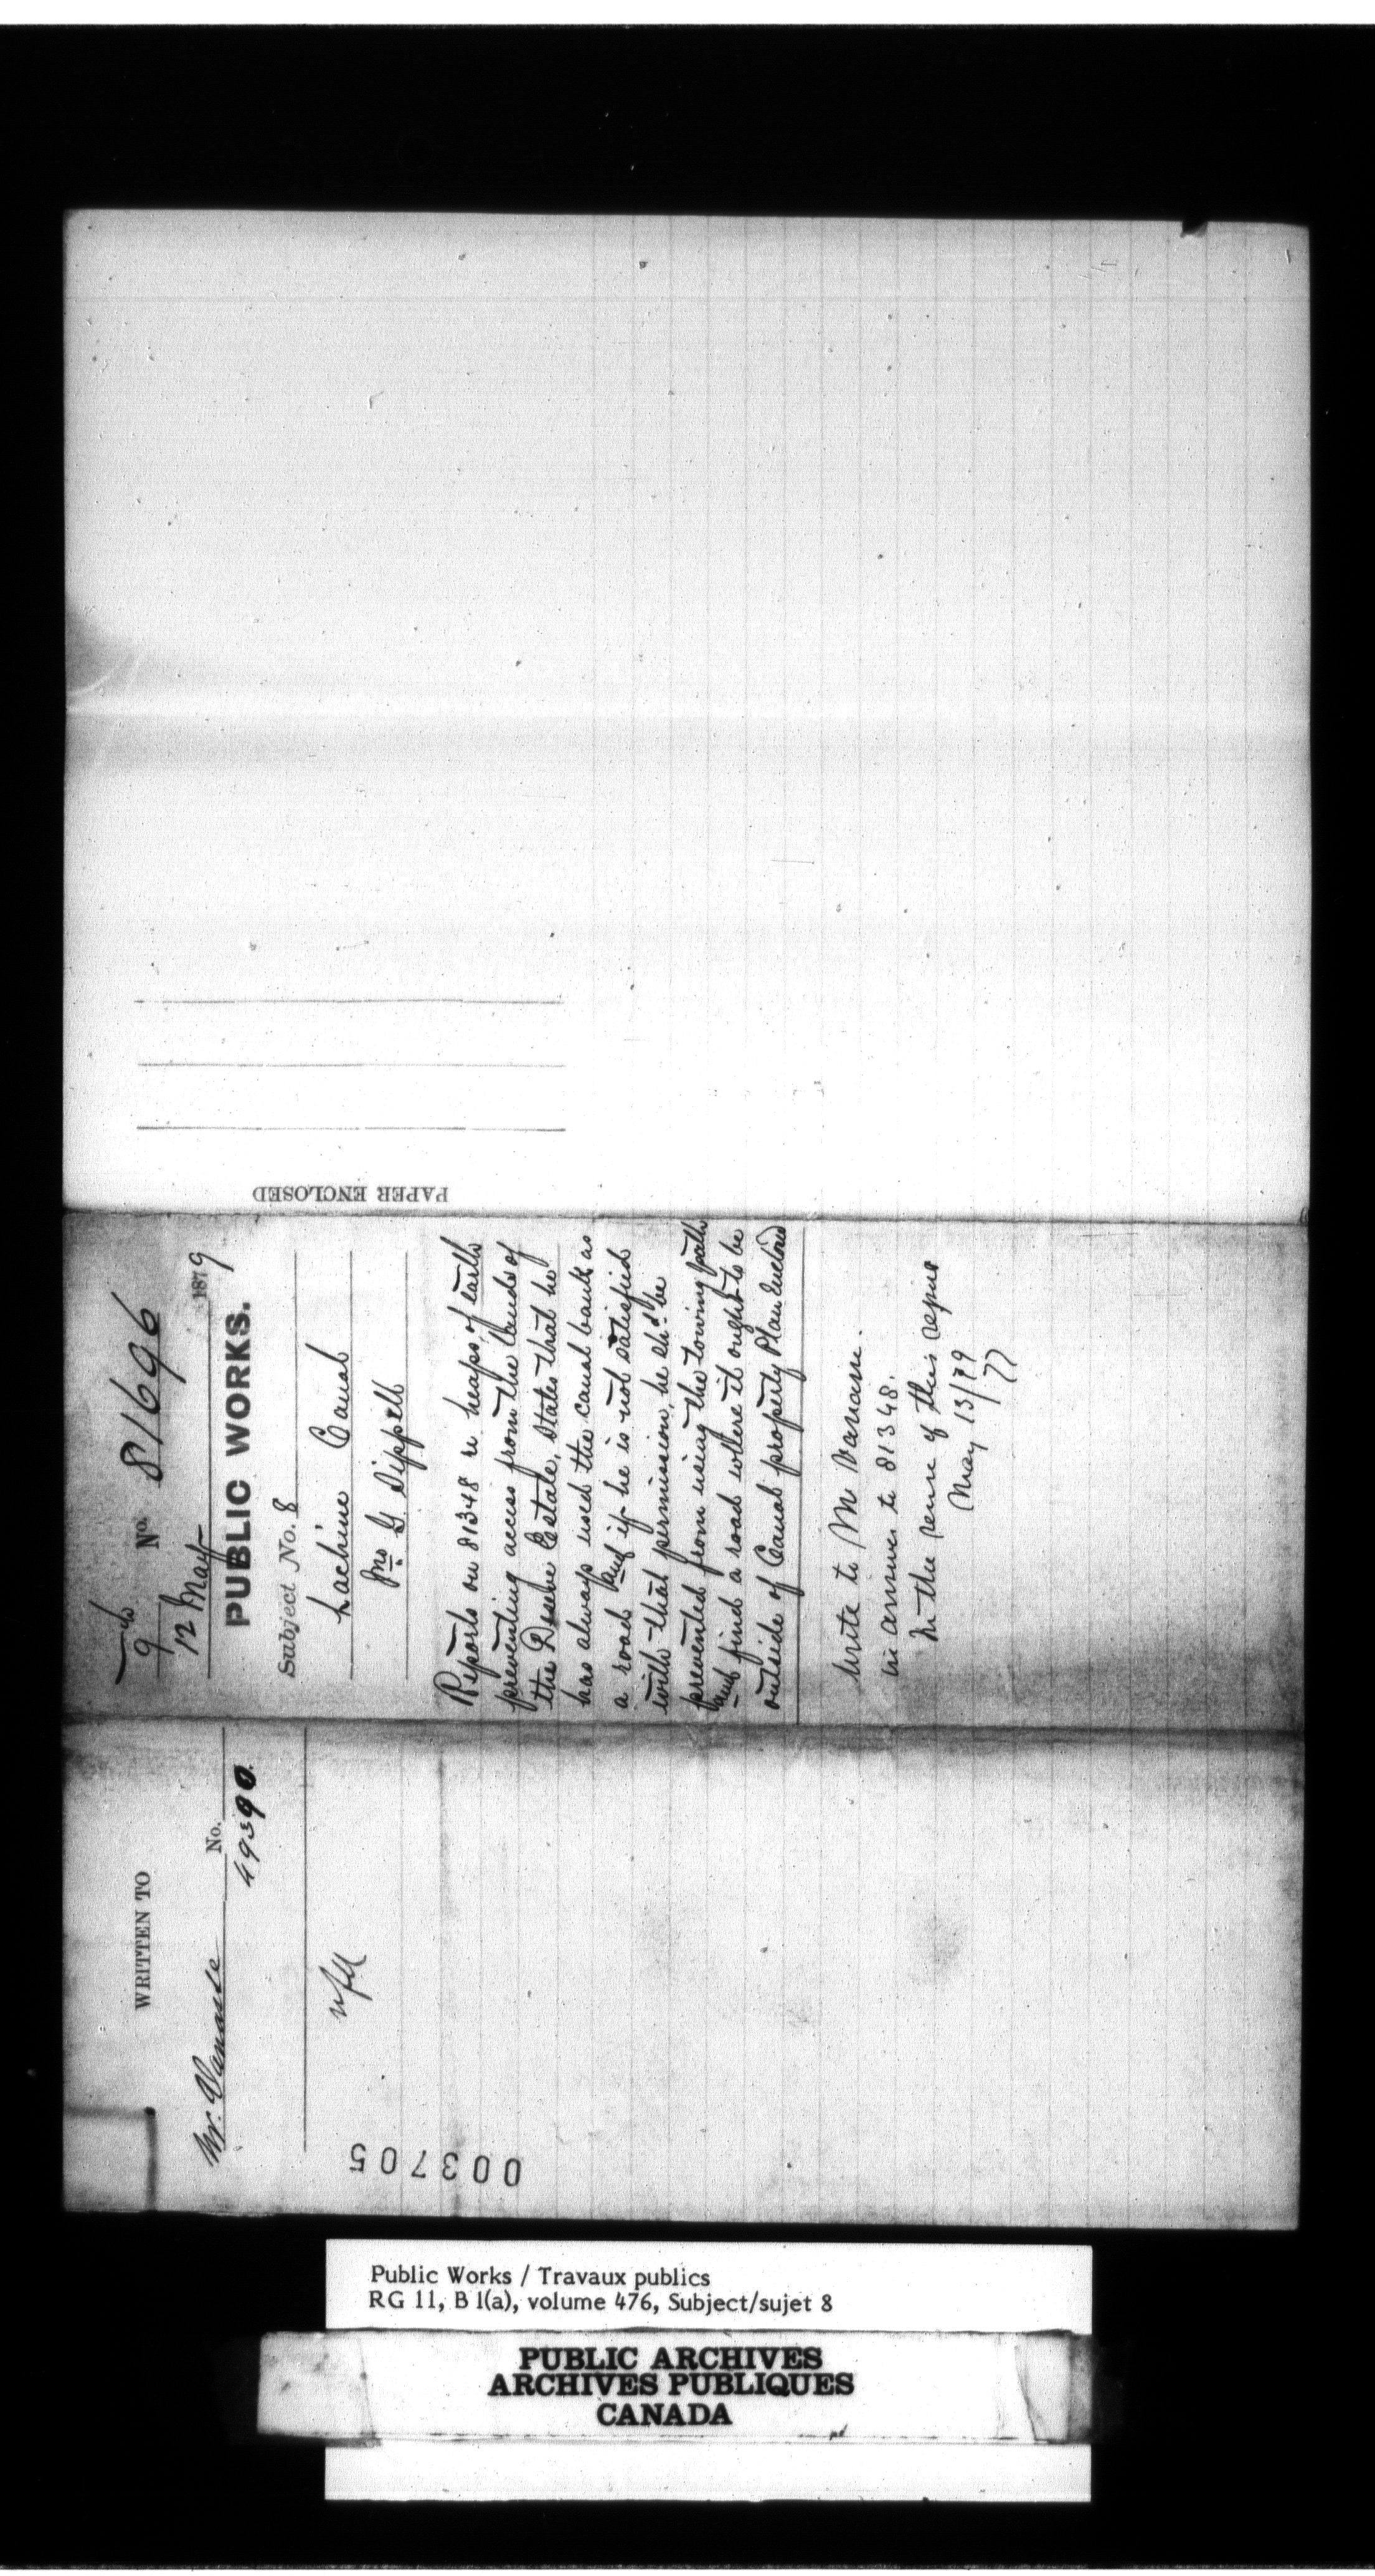 No. 81696
9
12 May 1879
PUBLIC WORKS.
Subject No. 8
Lachine Canal
Jno G Sippell
Reports on 81348 re heaps of earth
preventing access from the lands of
the Estate, states that he
has always used the canal bank as
a road and if he is not satisfied
with that permission, he shd be
prevented from using the towing path
and find a road where it ought to be
outside of Canal property Plan enclosed
Write to M Vanasse.
in answer to 81348.
In the sense of this report
May 13/79
WRITTEN TO
Mr. Vanasse No.
49390.
PAPER ENCLOSED
003705
Public Works / Travaux publics
RG 11, B 1(a), volume 476, Subject/sujet 8
PUBLIC ARCHIVES
ARCHIVES PUBLIQUES
CANADA